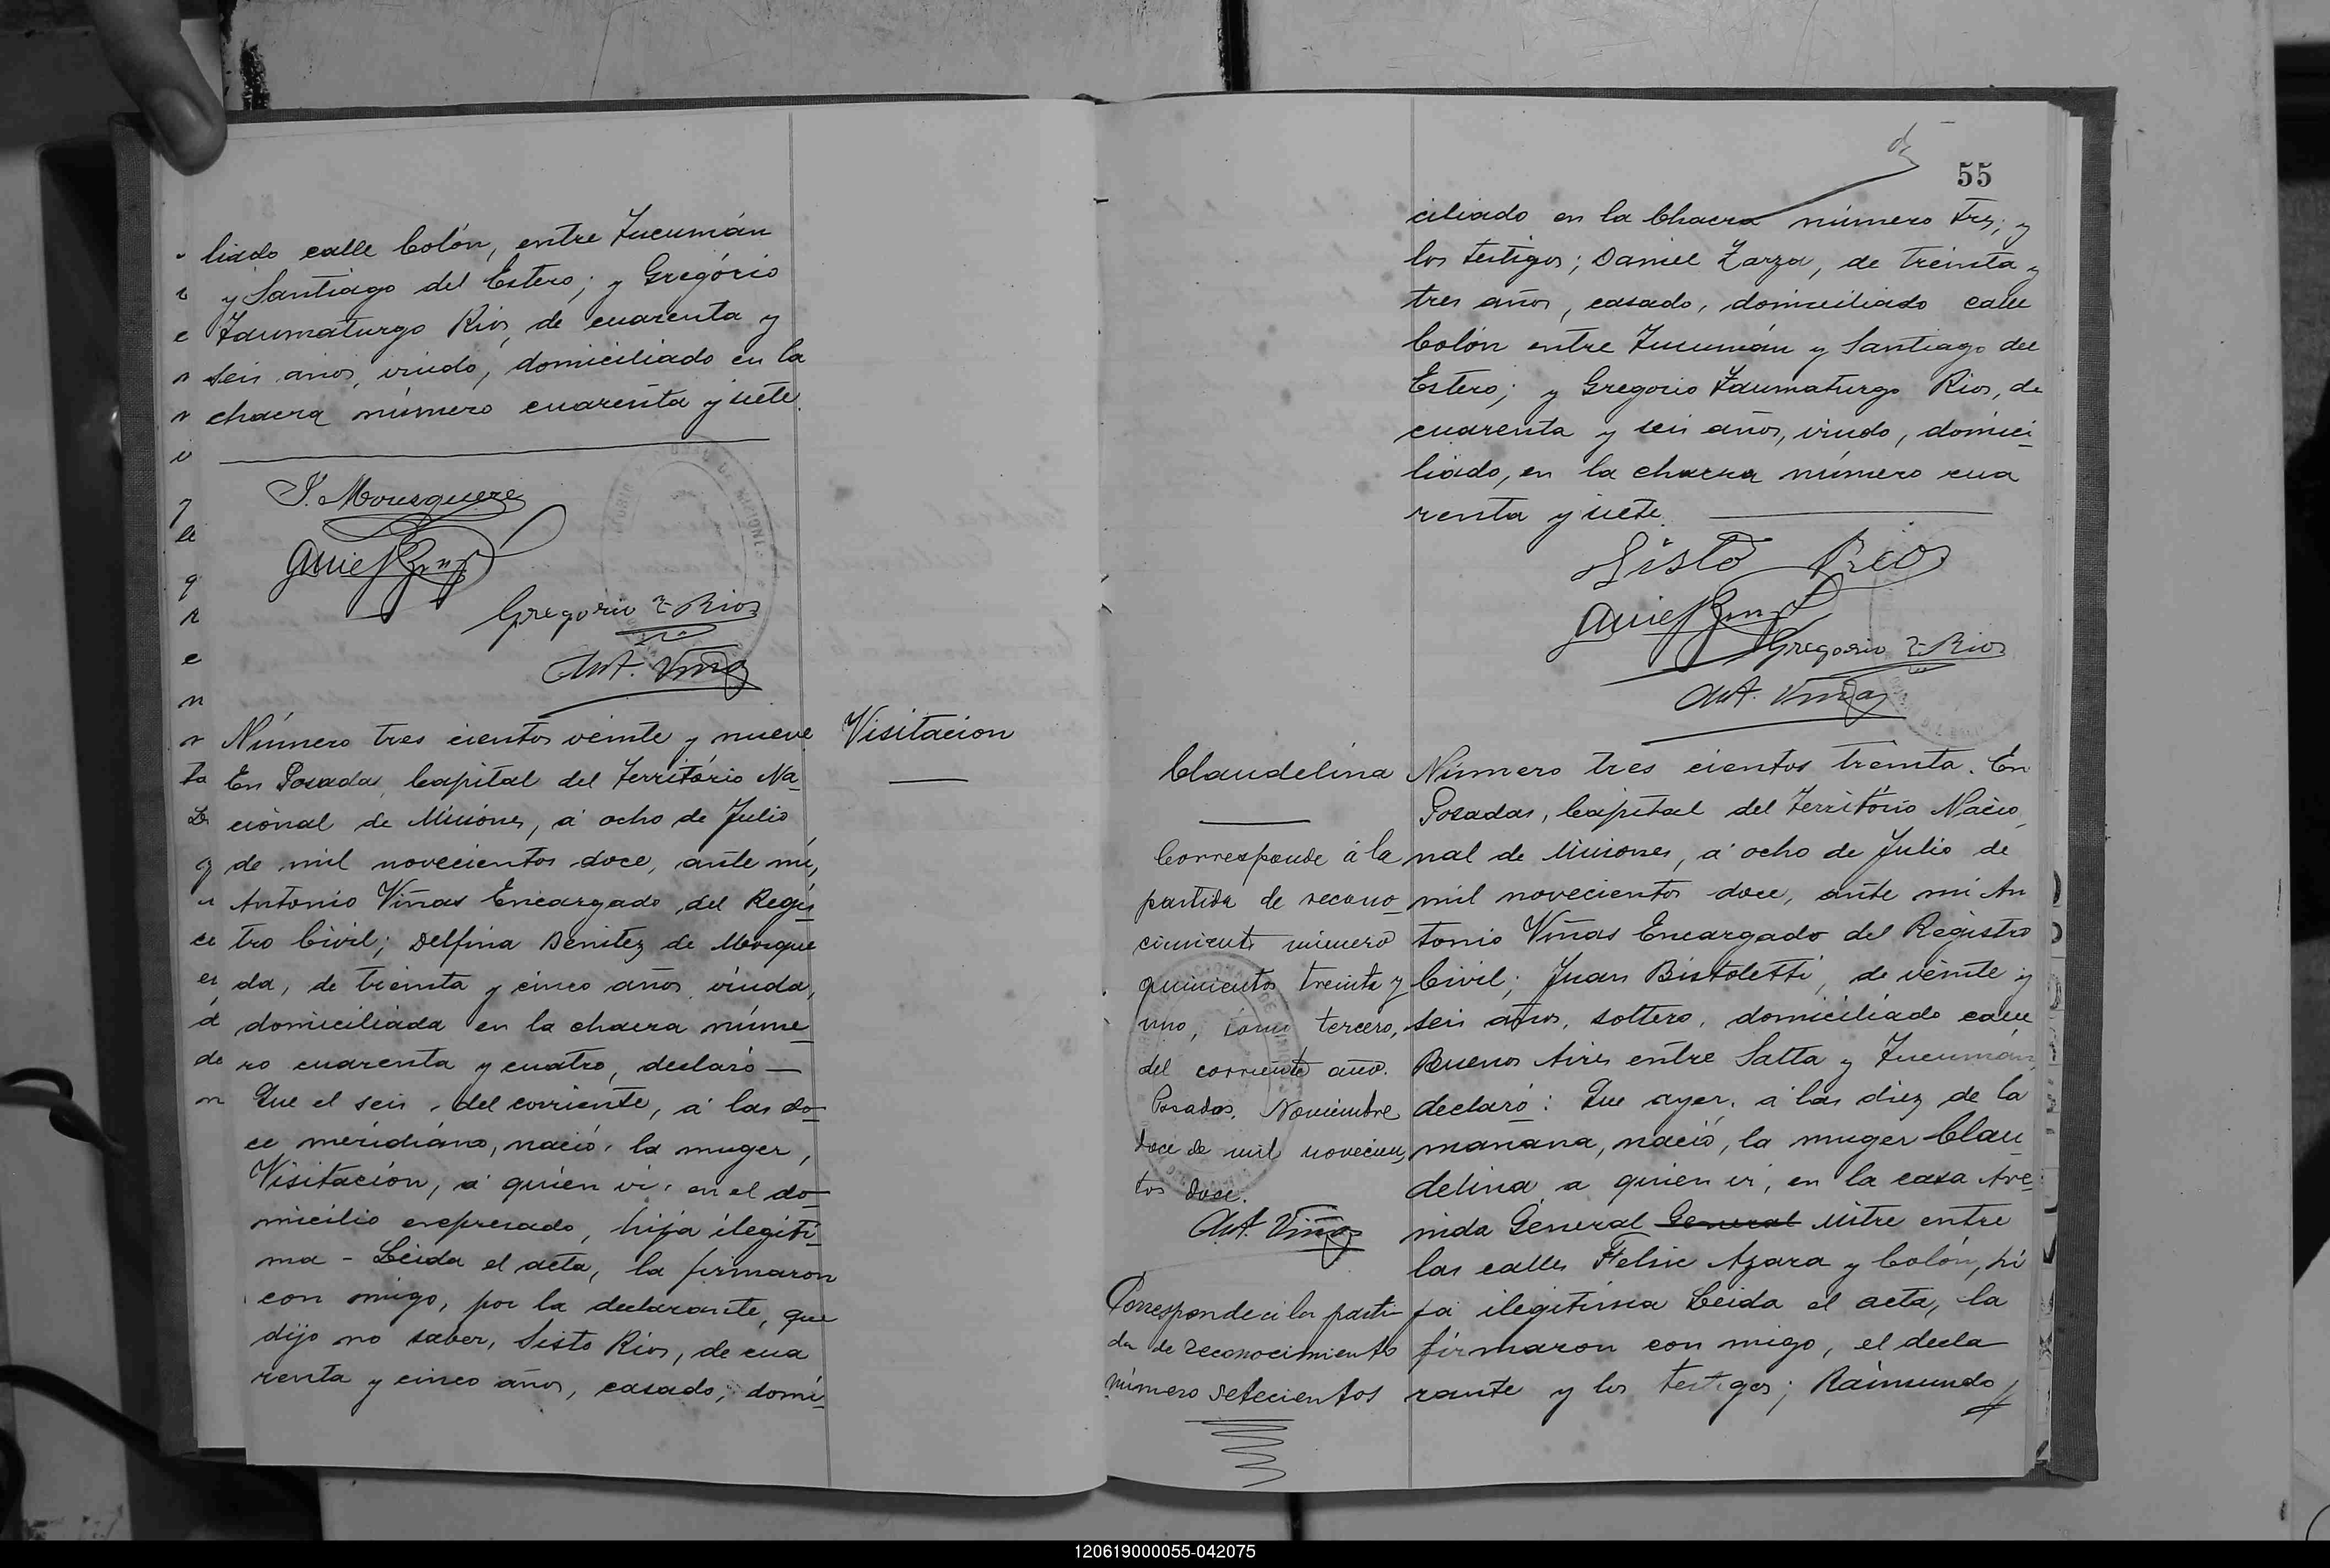 liado calle Colón, entre Tucumán
y Santiago del Estero; y Gregório
Taumaturgo Rios, de cuarenta y
seis años, viudo, domiciliado en la
chacra número cuarenta y siete.
J. Mousquere
Gregorio T. Rios
Ant. Viñas
Número tres cientos veinte y nueve
Visitacion
En Posadas, Capital del Território Na_
cional de Misiones, á ocho de Julio
de mil novecientos doce, ante mi,
Antonio Viñas Encargado del Regis_
tro Civil; Delfina Benitez de Mosque
da, de treinta y cinco años, viuda,
domiciliada en la chacra núme_
ro cuarenta y cuatro, declaró —
Que el seis, del corriente, á las do_
ce meridiano, nació, la muger,
Visitación, á quién vi, en el do_
micilio expresado, hija ilegiti_
ma - Leida el acta, la firmaron
con migo, por la declarante, que
dijo no saber, Sisto Rios, de cua
renta y cinco años, casado, domi_
55
ciliado en la Chacra número tres; y
los testigos; Daniel Zarza, de treinta y
tres años, casado, domiciliado calle
Colón entre Tucumán y Santiago del
Estero; y Gregorio Taumaturgo Rios, de
cuarenta y seis años, viudo, domici_
liado, en la chacra número cua
renta y siete.
Sisto Rios
Gregorio T. Rios
Ant. Viñas
Claudelina
Número tres cientos treinta. En
Posadas, Capital del Território Nacio_
nal de Misiones, á ocho de Julio de
mil novecientos doce, ante mi An
tonio Viñas Encargado del Registro
Civil; Juan Bistoletti, de veinte y
seis años, soltero, domiciliado calle
Buenos Aires entre Salta y Tucumán,
declaró: Que ayer, á las diez de la
mañana, nació, la muger Clau_
delina a quien vi, en la casa Ave_
nida General General Mitre entre
las calles Felsie Azara y Colón, hi
ja ilegitima Leida el acta, la
firmaron con migo, el decla
rante y los testigos; Raimundo
Corresponde á la
partida de recono_
cimiento número
quinientos treinta y
uno, tomo tercero,
del corriente año.
Posadas, Noviembre
doce de mil novecien_
tos doce.
Ant. Viñas
Corresponde á la parti_
da de reconocimiento
número setecientos
120619000055-042075